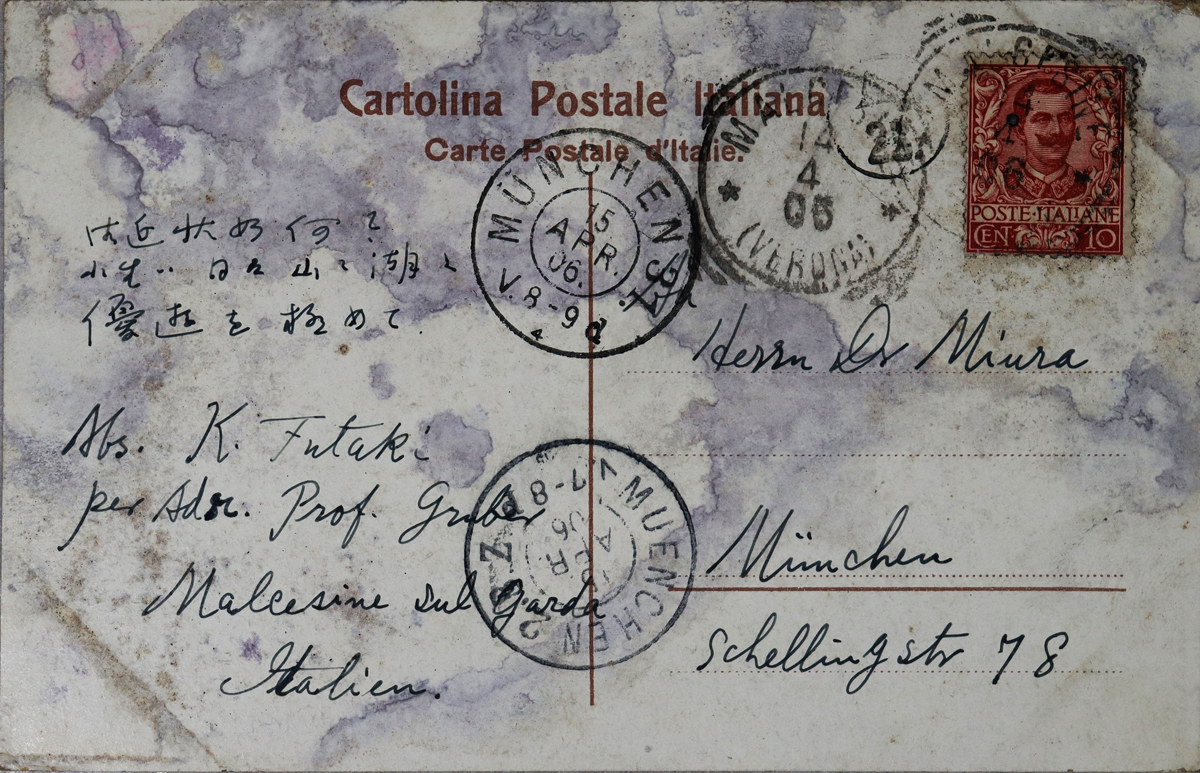 Cartolina Postale Italiana
Carte Postale d'Italie.
MÜNCHEN 37
15
APR.
06.
V. 8-9
14
4
06
(VERONA)
22
POSTE·ITALIANE
CEN. 10
近状如何?
小生ハ日々山ニ湖ニ
優遊を極めて
Herrn Dr Miura
München
Schellingstr 78
Abs. K. Futaki
per Adr. Prof. Gruber
Malcesine sul Garda
Italien.
MUENCHEN 2 B.Z.
V 7-8
APR
06